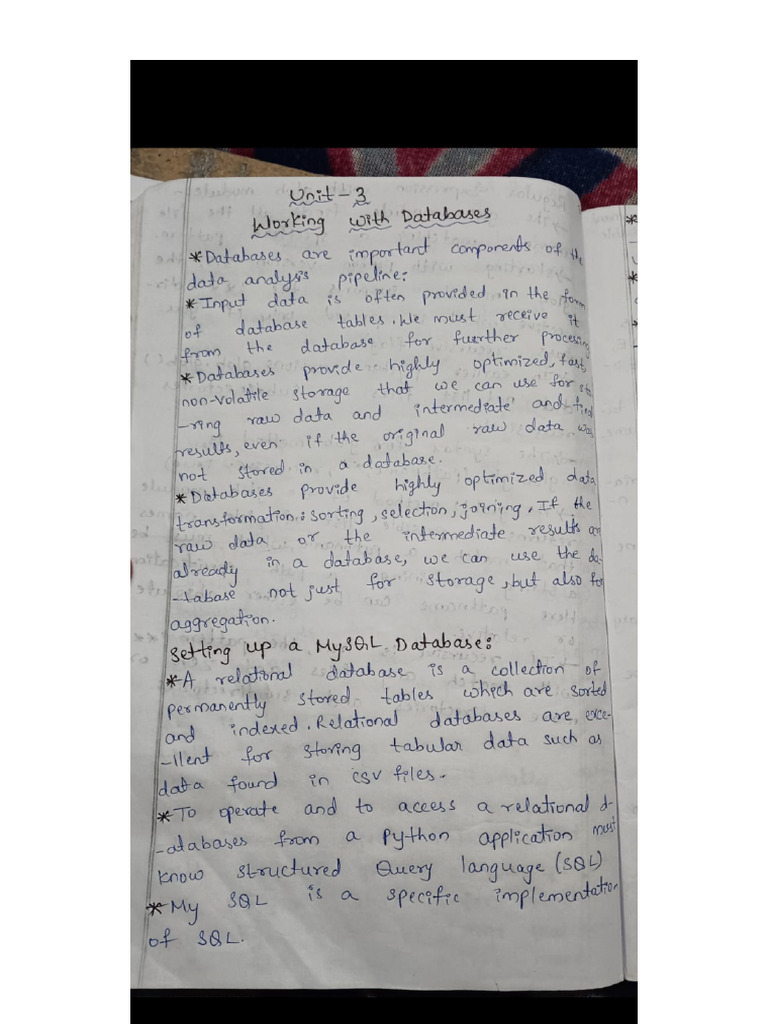 Unit-3
Working with Databases
*Databases are important components of the
data analysis pipeline:
*Input data is often provided in the form
of database tables. We must receive it
from the database for fuurther processing
*Databases provide highly optimized, fast,
non-volatile storage that we can use for sto
-ring raw data and intermediate and
results, even if the original raw data was
not stored in a database.
*Databases provide highly optimized data
transformation: sorting, selection, joining. If the
raw data or the intermediate results are
already in a database, we can use the da-
-tabase not just for storage, but also for
aggregation.
Setting up a MySQL Database:
*A relational database is a collection of
permanently stored tables which are sorted
and indexed. Relational databases are exce-
-llent for storing tabular data such as
data found in CSV files.
*To operate and to access a relational d-
-atabases from a Python application must
know structured Query language (SQL)
*My SQL is a specific implementation
of SQL.